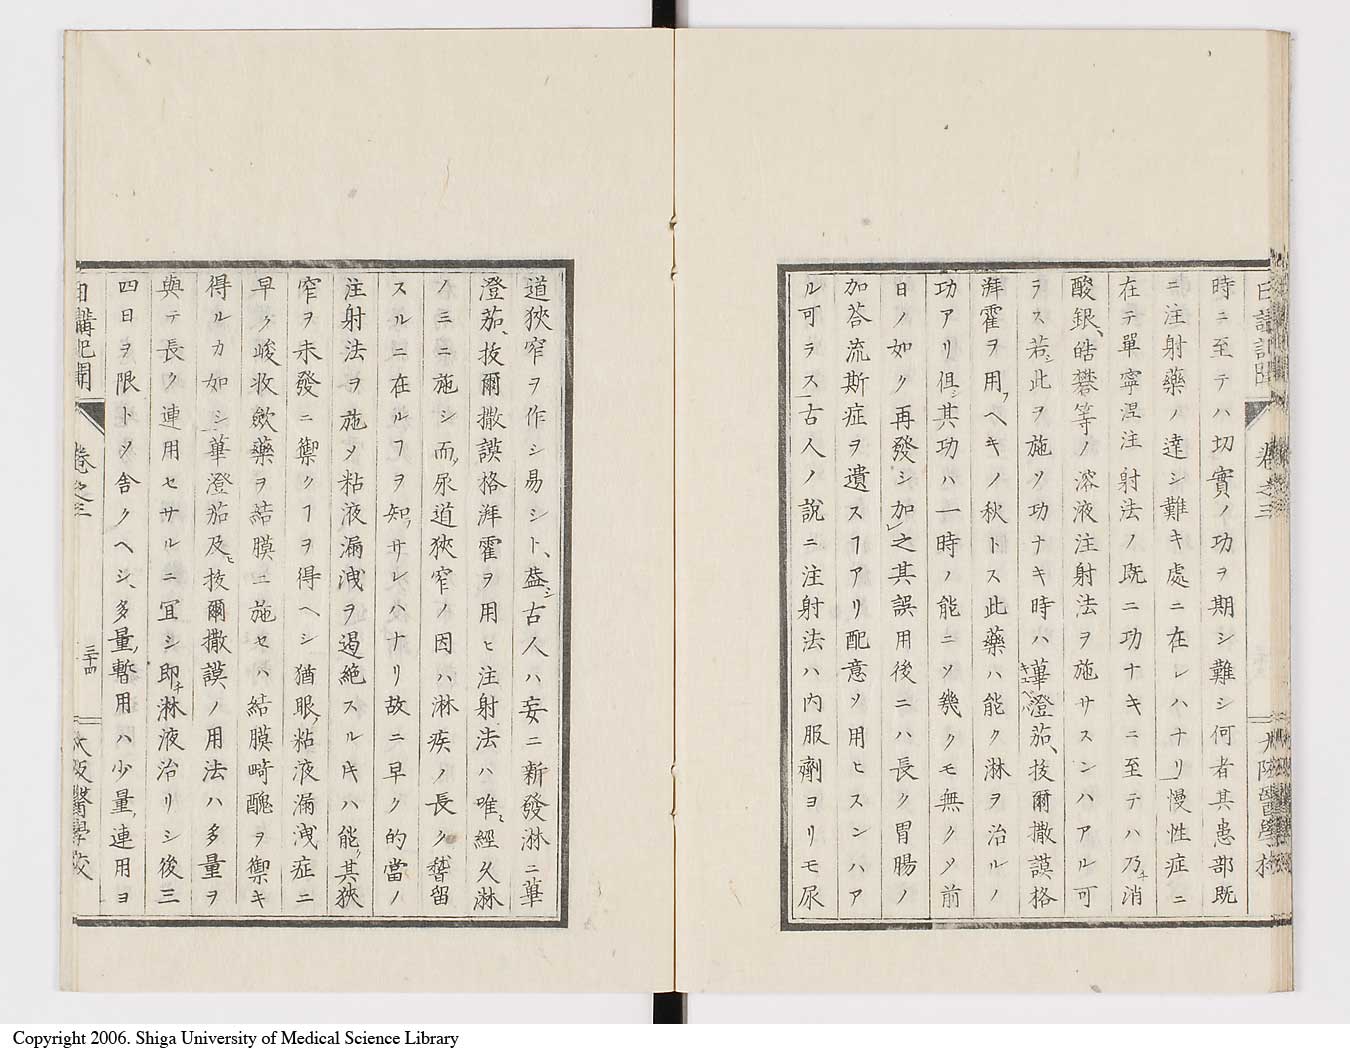 時ニ至テハ切實ノ功ヲ期シ難シ何者其患部既
ニ注射藥ノ達シ難キ處ニ在レハナリ」慢性症ニ
在テ單寧涅注射法ノ既ニ功ナキニ至テハ乃チ消
酸銀、皓礬等ノ溶液注射法ヲ施サスンハアル可
ラス若シ此ヲ施ソ功ナキ時ハ蓽澄茄、抜爾撒謨格
湃霍ヲ用フヘキノ秋トス此藥ハ能ク淋ヲ治ルノ
功アリ倶シ其功ハ一時ノ能ニソ幾クモ無クメ前
日ノ如ク再發シ加之其誤用後ニハ長ク胃腸ノ
加荅流斯症ヲ遺スヿアリ配意ソ用ヒスンハア
ル可ラス」古人ノ說ニ注射法ハ內服劑ヨリモ尿
道狹窄ヲ作シ易シト、葢シ古人ハ妄ニ新發淋ニ蓽
澄茄、抜爾撒謨格湃霍ヲ用ヒ注射法ハ唯、經久淋
ノミニ施シ而、尿道狹窄ノ因ハ淋疾ノ長ク瞀留
スルニ在ルヿヲ知ラサレハナリ故ニ早ク的當ノ
注射法ヲ施メ粘液漏洩ヲ遏絶スルキハ能ク其狹
窄ヲ未發ニ禦クヿヲ得ヘシ猶眼ノ粘液漏洩症ニ
早ク峻收斂藥ヲ結膜ニ施セハ結膜畸醜ヲ禦キ
得ルカ如シ」蓽澄茄及ヒ抜爾撒謨ノ用法ハ多量ヲ
與テ長ク連用セサルニ冝シ即チ淋液治リシ後三
四日ヲ限トメ舎クヘシ、多量、暫用ハ少量、連用ヨ
卷之三
三十四
大阪醫學校
Copyright 2006. Shiga University of Medical Science Library